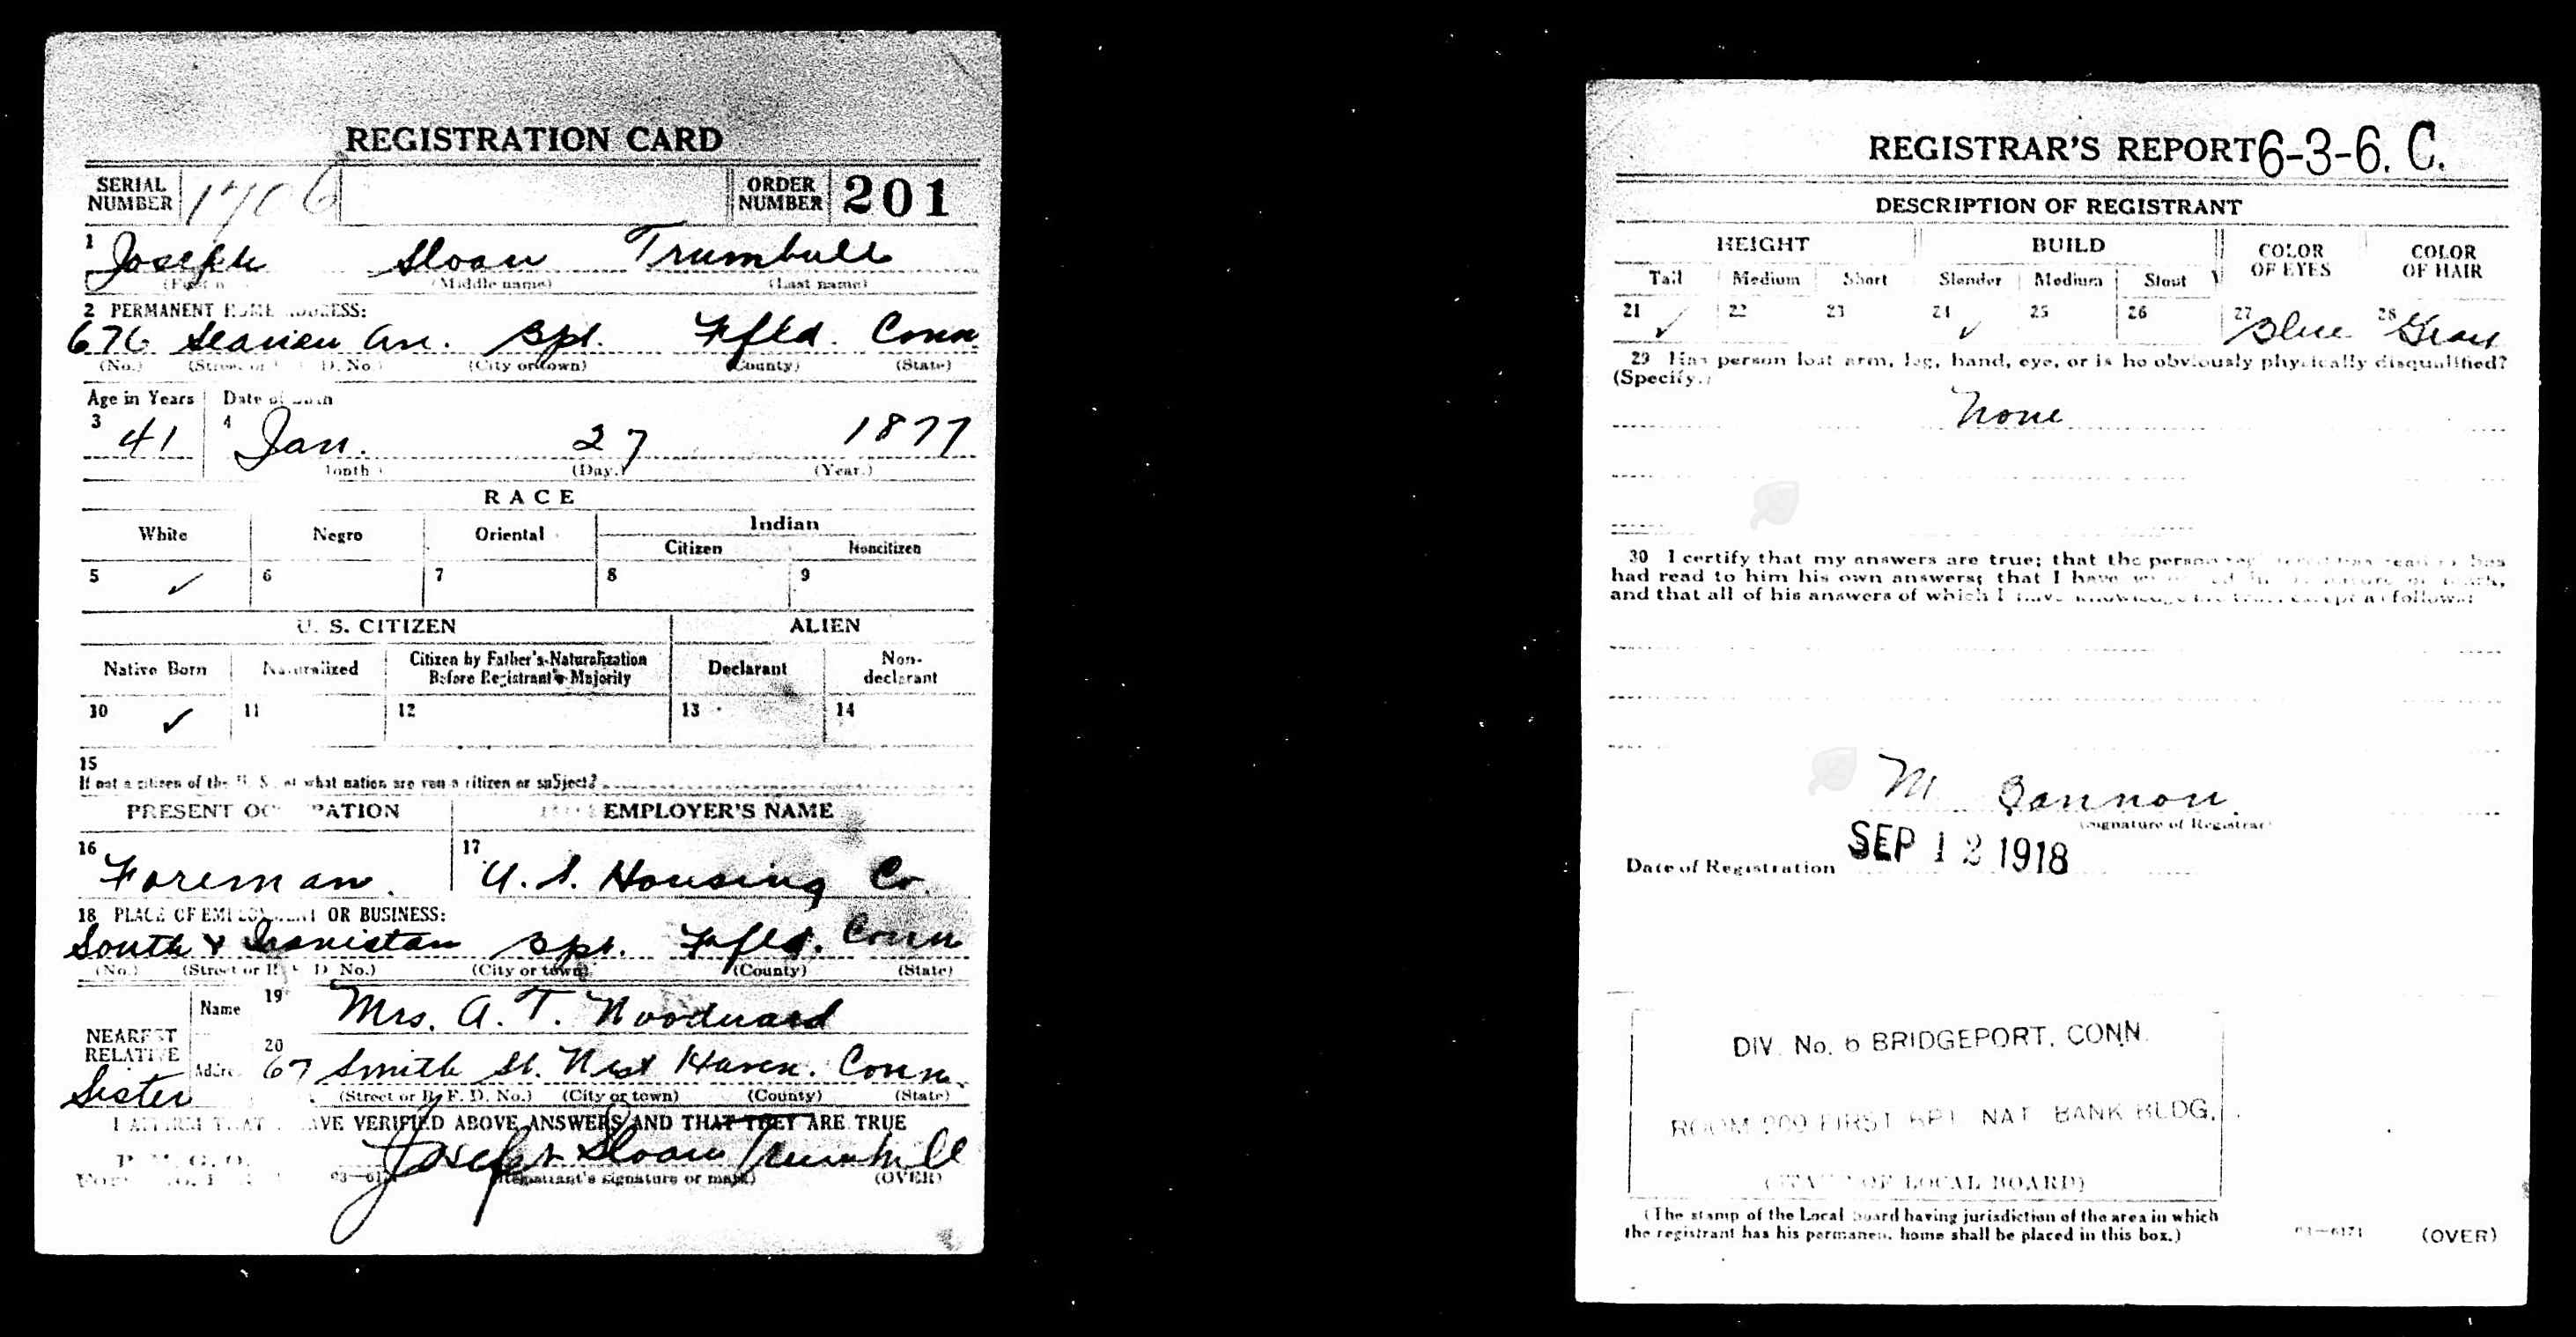 REGISTRATION CARD
SERIAL NUMBER 1706 ORDER NUMBER 201
1 Joseph Sloan Trumbull
(Middle name) (Last name)
2 PERMANENT HOME ADDRESS:
676 Seaview Av. Bpt. Ffld. Conn
(No.) (City or town) (County) (State)
Age in Years Date of Birth
3 41 4 Jan. 27 1877
(Day.) (Year.)
RACE
White Negro Oriental Indian
Citizen Noncitizen
5 ✓ 6 7 8 9
U. S. CITIZEN ALIEN
Native Born Naturalized Citizen by Father's Naturalization Before Registrant's Majority Declarant Non-declarant
10 ✓ 11 12 13 14
15
If not a citizen of the U. S., of what nation are you a citizen or subject?
PRESENT OCCUPATION EMPLOYER'S NAME
16 Foreman. 17 U. S. Housing Co.
18 PLACE OF EMPLOYMENT OR BUSINESS:
South & Iranistan Bpt. Ffld. Conn
(No.) (Street or R. F. D. No.) (City or town) (County) (State)
NEAREST RELATIVE Name 19 Mrs. A. T. Woodward
Address 20 67 Smith St. West Haven. Conn.
Sister (Street or R. F. D. No.) (City or town) (County) (State)
I AFFIRM THAT I HAVE VERIFIED ABOVE ANSWERS AND THAT THEY ARE TRUE
P. M. G. O.
Joseph Sloan Trumbull
(Registrant's signature or mark) (OVER)
REGISTRAR'S REPORT 6-3-6. C.
DESCRIPTION OF REGISTRANT
HEIGHT BUILD COLOR OF EYES COLOR OF HAIR
Tall Medium Short Slender Medium Stout
21 ✓ 22 23 24 ✓ 25 26 27 Blue 28 Gray
29 Has person lost arm, leg, hand, eye, or is he obviously physically disqualified?
(Specify.)
None
30 I certify that my answers are true; that the person registered has read or has
had read to him his own answers; that I have witnessed his signature or mark,
and that all of his answers of which I have knowledge are true, except as follows:
M Gannon
(Signature of Registrar)
Date of Registration SEP 12 1918
DIV. No. 6 BRIDGEPORT, CONN.
ROOM 209 FIRST BPT. NAT. BANK BLDG.
(STAMP OF LOCAL BOARD)
(The stamp of the Local Board having jurisdiction of the area in which
the registrant has his permanent home shall be placed in this box.)
03—6171 (OVER)